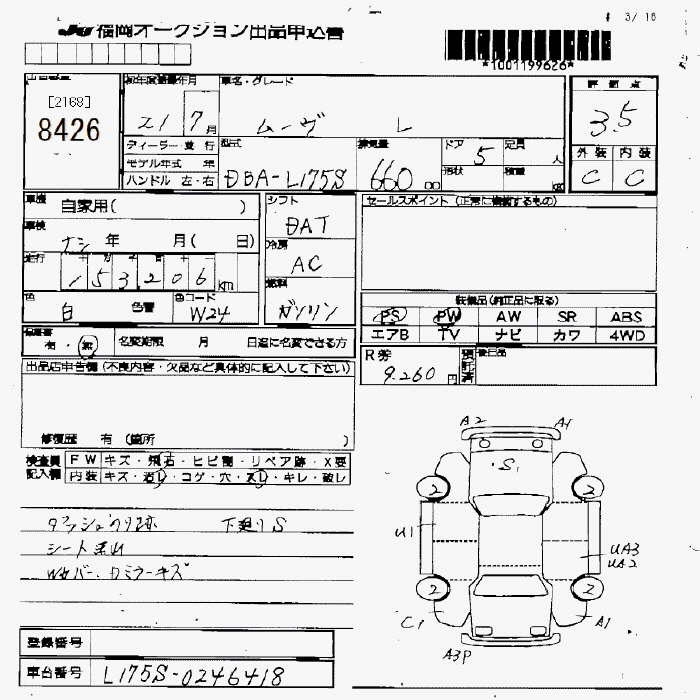 JU福岡オークション出品申込書
3/16
*1001199626*
[2168]
8426
初年度登録年月
21 7月
車名・グレード
ムーヴ L
評価点
3.5
ディーラー・並行
モデル年式 年
ハンドル 左・右
型式
DBA-L175S
排気量
660 cc
ドア 5
形状
定員 人
積量 kg
外装 内装
C C
車歴 自家用( )
車検 ナシ 年 月( 日)
走行 153,206 km
色 白 色替
色コード W24
シフト
DAT
冷房
AC
燃料
ガソリン
セールスポイント(正常に機能するもの)
装備品(純正品に限る)
PS PW AW SR ABS
エアB TV ナビ カワ 4WD
有・無 名変期限 月 日迄に名変できる方
R券
9.260円
預託済
後日品
出品店申告欄(不良内容・欠品など具体的に記入して下さい)
修復歴 有(箇所 )
検査員記入欄
FW キズ・飛石・ヒビ割・リペア跡・X要
内装 キズ・汚レ・コゲ・穴・スレ・キレ・破レ
下廻りS
シート
A2 A1
S1
2 2
U1
UA3
UA2
2 2
C1 A1
A3P
登録番号
車台番号 L175S-0246418